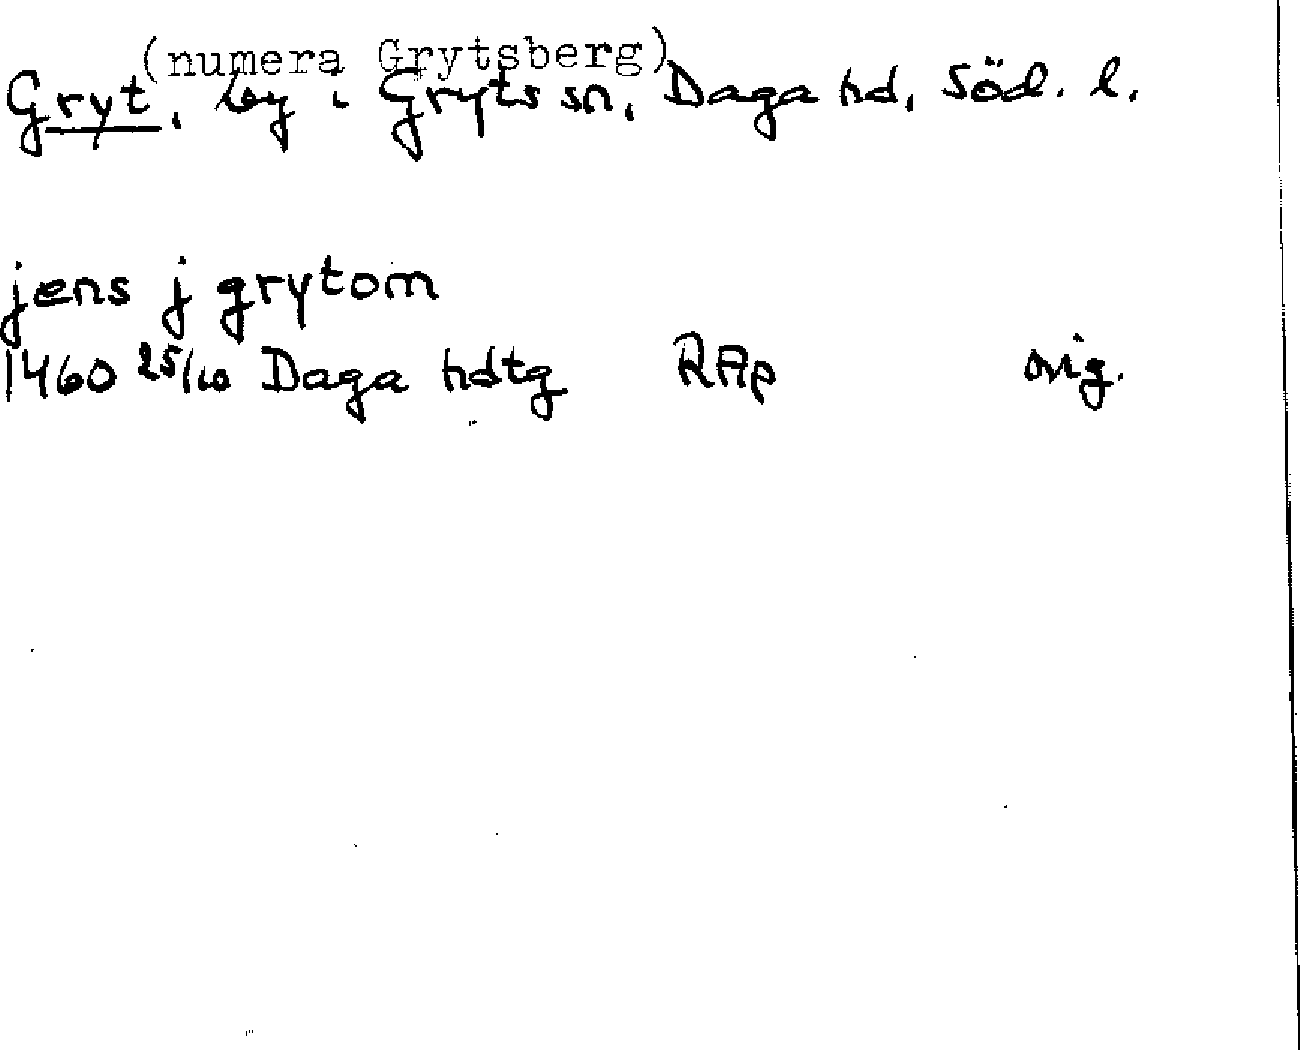 (numera Grytsberg)
Gryt, by i Gryts sn, Daga hd, Söd. l.
jens j grytom
1460 25/10 Daga hdtg RAp orig.